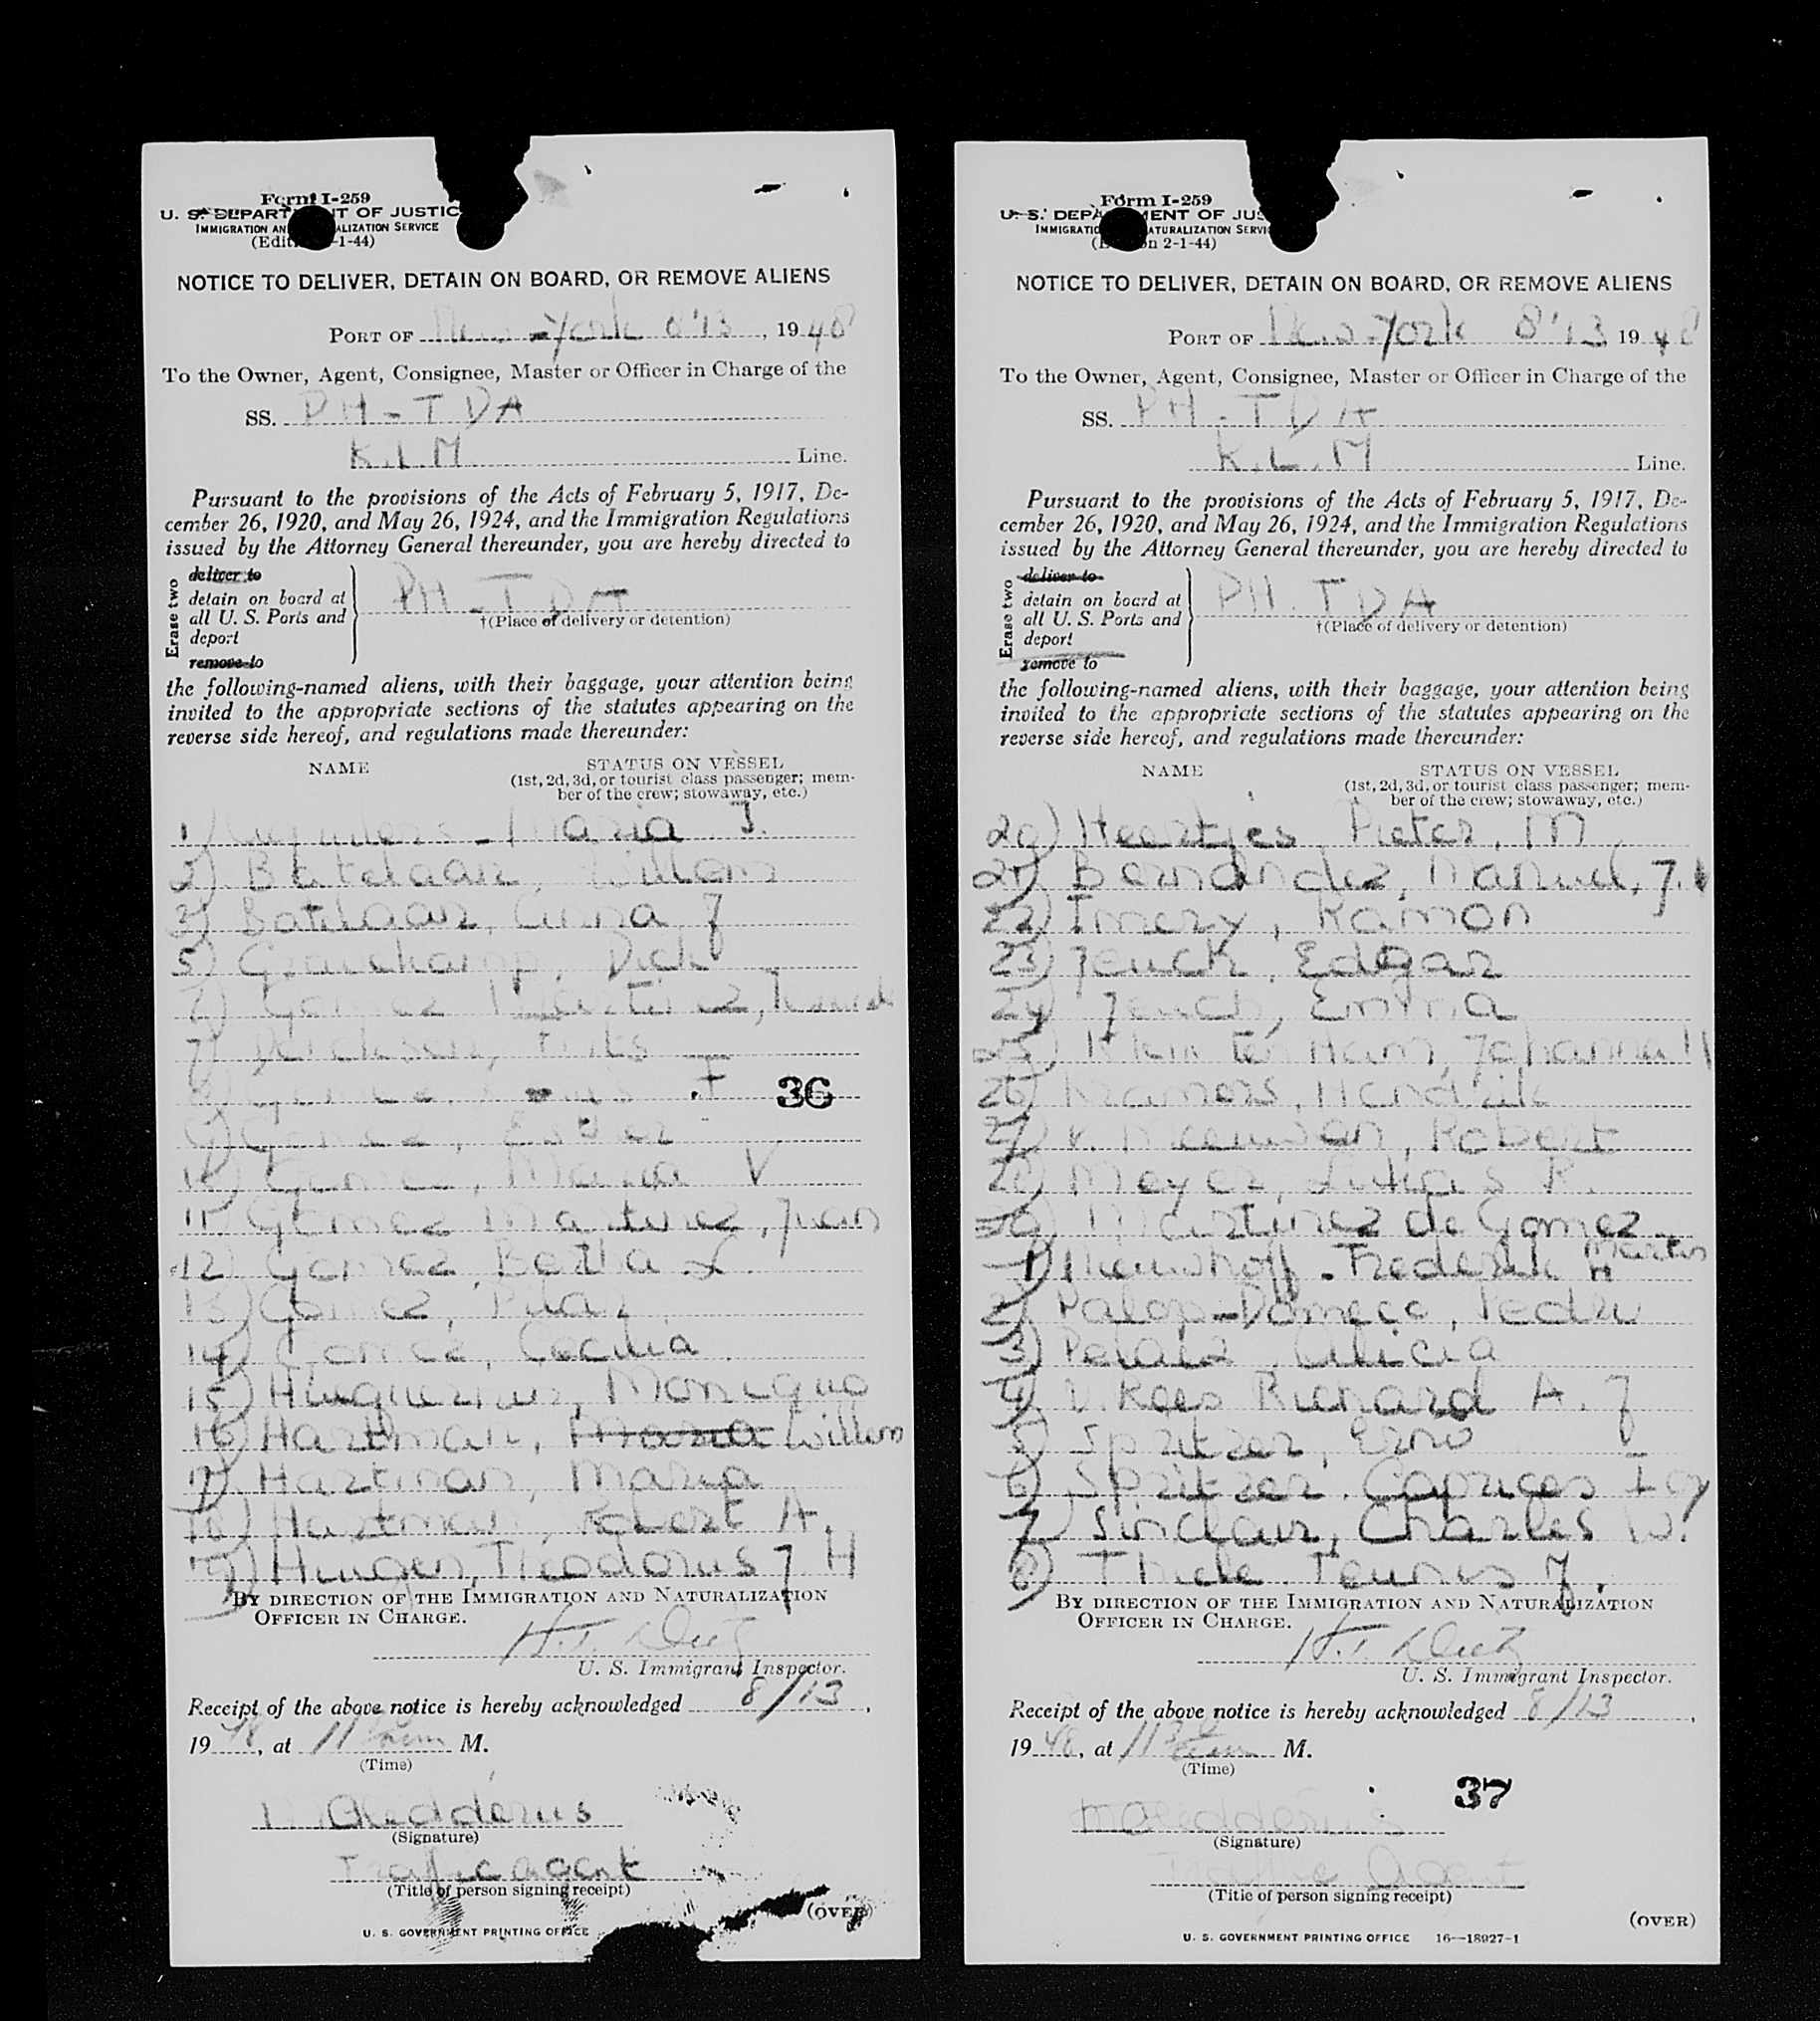 Form I-259
U. S. DEPARTMENT OF JUSTIC
IMMIGRATION AN ALIZATION SERVICE
(Editi -1-44)
NOTICE TO DELIVER, DETAIN ON BOARD, OR REMOVE ALIENS
PORT OF New-York 8'13, 1948
To the Owner, Agent, Consignee, Master or Officer in Charge of the
SS. PH-TDA
K.L.M Line.
Pursuant to the provisions of the Acts of February 5, 1917, De-
cember 26, 1920, and May 26, 1924, and the Immigration Regulations
issued by the Attorney General thereunder, you are hereby directed to
Erase two
deliver to
detain on board at
all U. S. Ports and
deport
remove to
PH-TDA
†(Place of delivery or detention)
the following-named aliens, with their baggage, your attention being
invited to the appropriate sections of the statutes appearing on the
reverse side hereof, and regulations made thereunder:
NAME
STATUS ON VESSEL
(1st, 2d, 3d, or tourist class passenger; mem-
ber of the crew; stowaway, etc.)
1) Maria J.
2) Batelaar, Willem
3) Batelaar, Anna J
5) Dick
Gomez
7) Frits
36
9) Gomez, Esther
10) Gomez, Maria V
11. Gomez Martinez, Juan
12) Gomez, Bertha L.
13) Gomez, Pilar
14) Gomez, Cecilia.
15) Monique
16) Hartman, Maria Willem
17) Hartman, Maria
18) Hartman, Robert A.
19) Theodorus J. H
BY DIRECTION OF THE IMMIGRATION AND NATURALIZATION
OFFICER IN CHARGE.
U. S. Immigrant Inspector.
Receipt of the above notice is hereby acknowledged 8/13,
1948, at 11 30 am M.
(Time)
(Signature)
Traffic agent
(Title of person signing receipt)
U. S. GOVERNMENT PRINTING OFFICE
(OVER)
Form I-259
U. S. DEPA MENT OF JUS
IMMIGRATIO ATURALIZATION SERVI
(E n 2-1-44)
NOTICE TO DELIVER, DETAIN ON BOARD, OR REMOVE ALIENS
PORT OF New-York 8'13 1948
To the Owner, Agent, Consignee, Master or Officer in Charge of the
SS. PH-TDA
K.L.M Line.
Pursuant to the provisions of the Acts of February 5, 1917, De-
cember 26, 1920, and May 26, 1924, and the Immigration Regulations
issued by the Attorney General thereunder, you are hereby directed to
Erase two
deliver to
detain on board at
all U. S. Ports and
deport
remove to
PH.TDA
†(Place of delivery or detention)
the following-named aliens, with their baggage, your attention being
invited to the appropriate sections of the statutes appearing on the
reverse side hereof, and regulations made thereunder:
NAME
STATUS ON VESSEL
(1st, 2d, 3d, or tourist class passenger; mem-
ber of the crew; stowaway, etc.)
20) Heertjes Pieter, M
21) Bernandez, Manuel, J.
22) Imery, Ramon
23) Jenck, Edgar
24) Jenck, Emma
25) Klein ten Ham, Johanna H
26) Kramers, Hendrik
27) v. Meeuwen, Robert
28) Meyer, Lukas R.
30) Martinez de Gomez
1) Nieuwhoff. Frederik H Martin
2) Palop-Domece, Pedro
3) Pelaiz, Alicia
4) v. Rees Richard A. J
5) Spritzer, Erno
6) Spritzer.
7) Sinclair, Charles W.
8) Thiele Teunis J.
BY DIRECTION OF THE IMMIGRATION AND NATURALIZATION
OFFICER IN CHARGE.
U. S. Immigrant Inspector.
Receipt of the above notice is hereby acknowledged 8/13,
1948, at 11 30 am M.
(Time)
37
(Signature)
Traffic Agent
(Title of person signing receipt)
(OVER)
U. S. GOVERNMENT PRINTING OFFICE 16—18927-1